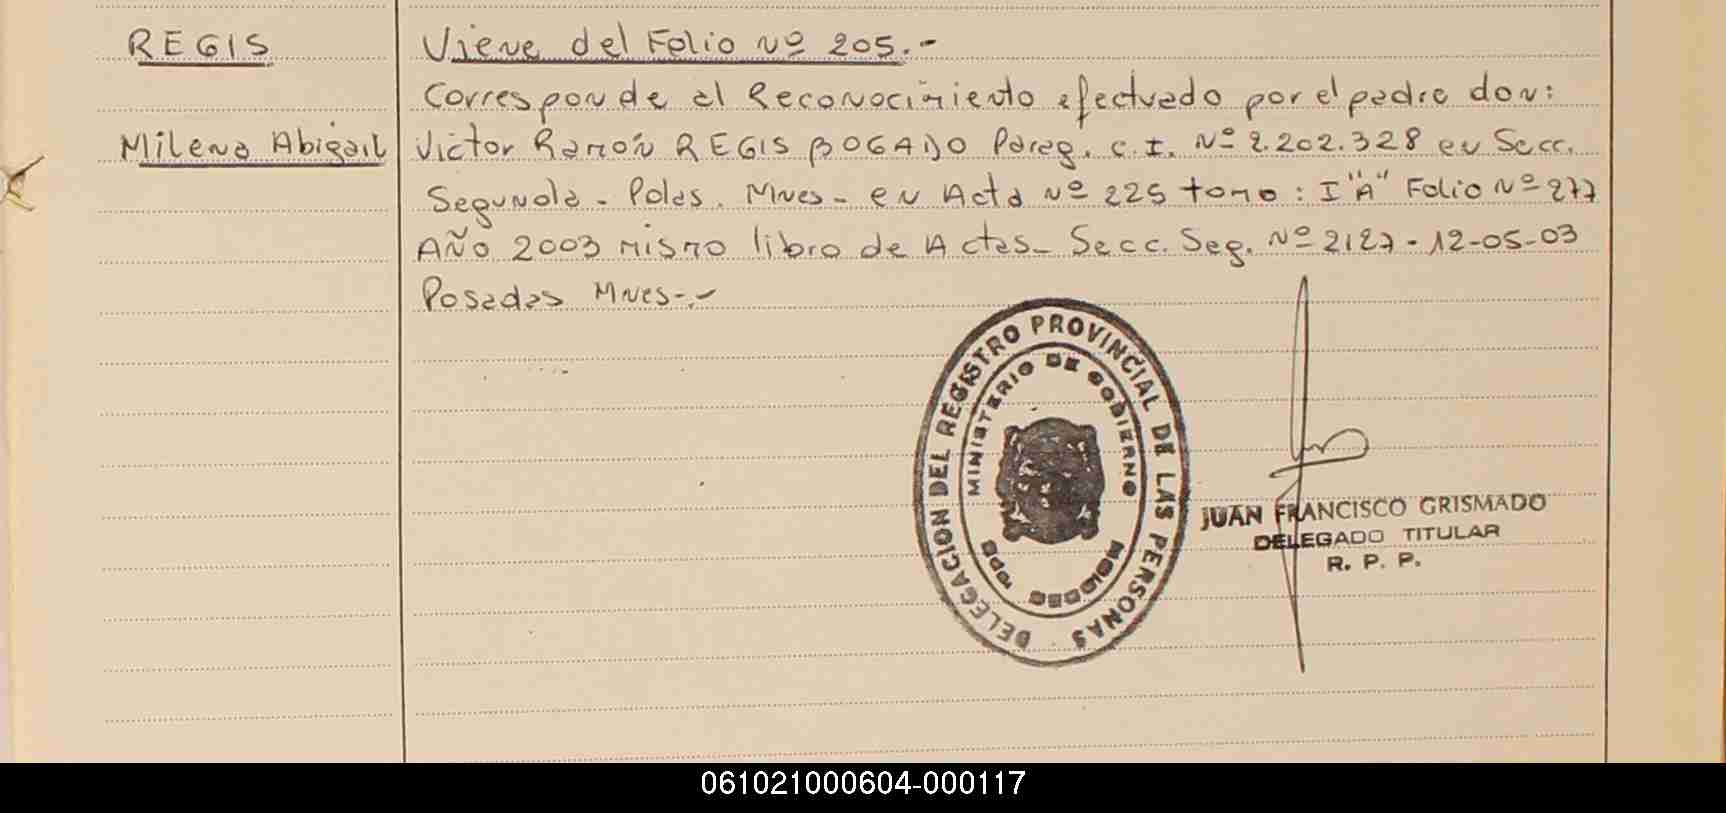 REGIS
Viene del Folio Nº 205.-
Corresponde al Reconocimiento efectuado por el padre don:
Milena Abigail
Victor Ramón REGIS BOGADO Parag. C.I. Nº 2.202.328 en Secc.
Segunda - Pdas. Mnes - en Acta Nº 225 tomo: I "A" Folio Nº 277
Año 2003 mismo libro de Actas - Secc. Seg. Nº 2127 - 12-05-03
Posadas Mnes-.-
DELEGACION DEL REGISTRO PROVINCIAL DE LAS PERSONAS
MINISTERIO DE GOBIERNO
JUAN FRANCISCO GRISMADO
DELEGADO TITULAR
R. P. P.
061021000604-000117